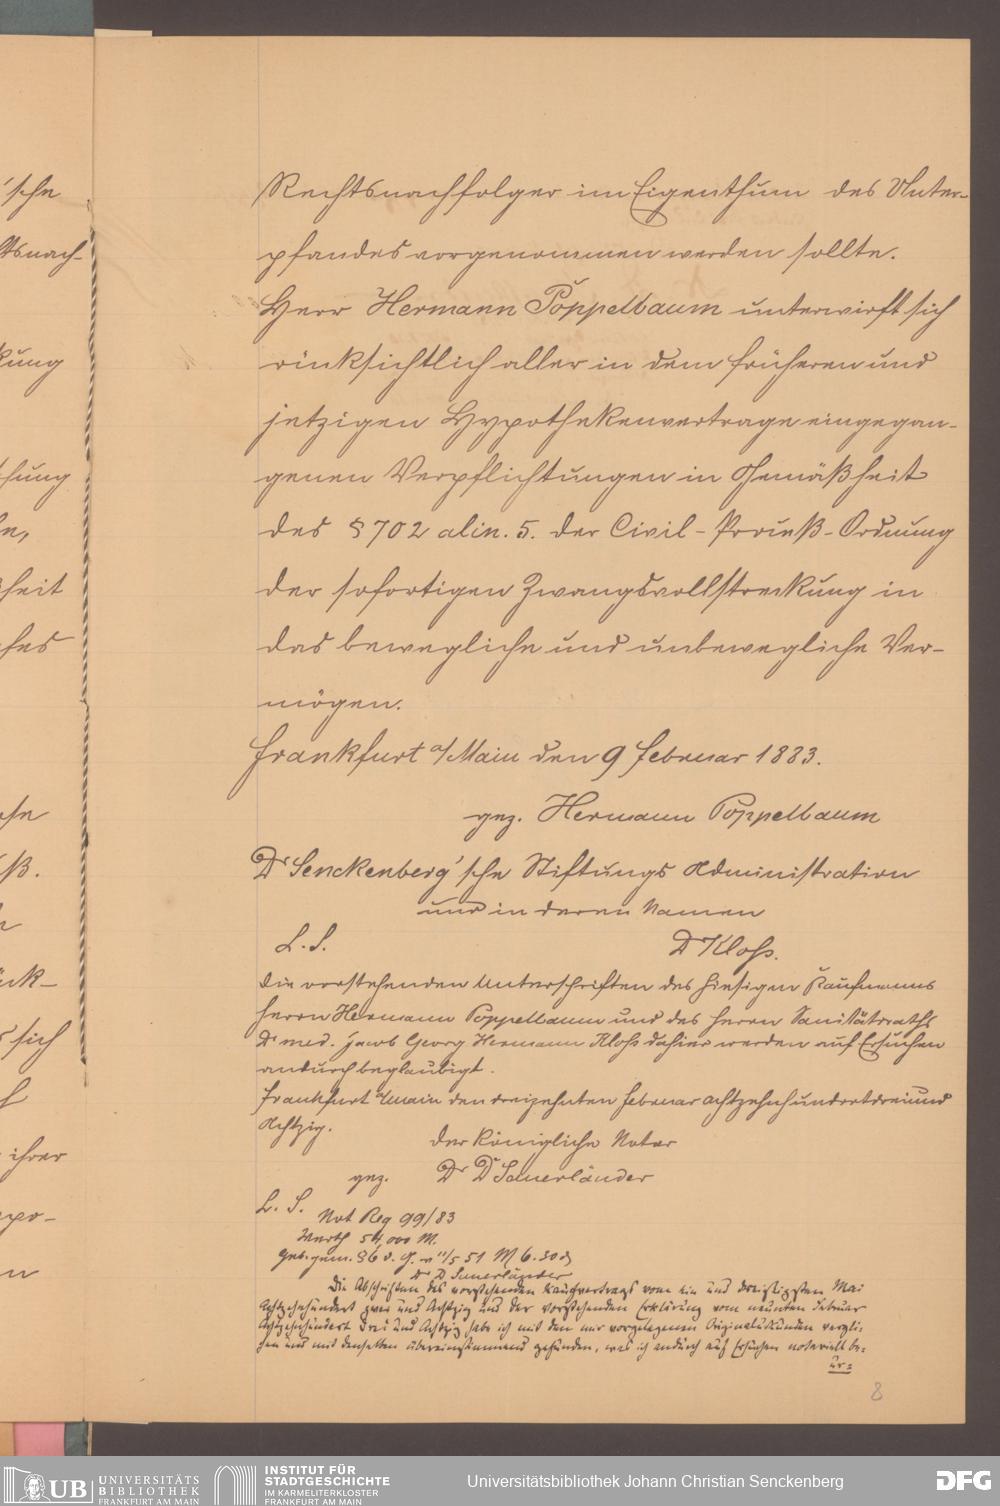 'sche
tsnach-
kung
chung
n,
heit
ches
ese
ß.
ück-
s sich
ihrer
ypo-
en
Rechtsnachfolger im Eigenthum des Unter-
pfandes vorgenommen werden sollte.
Herr Hermann Poppelbaum unterwirft sich
rücksichtlich aller in dem früheren und
jetzigen Hypothekenvertrage eingegan-
genen Verpflichtungen in Gemäßheit
des § 702 alin. 5. der Civil-Proceß-Ordnung
der sofortigen Zwangsvollstreckung in
das bewegliche und unbewegliche Ver-
mögen.
Frankfurt a/Main den 9 Februar 1883.
gez. Hermann Poppelbaum
Dr Senckenberg'sche Stiftungs Administration
und in deren Namen
L. S. Dr Kloß.
Die vorstehenden Unterschriften des hiesigen Kaufmanns
Herrn Hermann Poppelbaum und des Herrn Sanitätsraths
Dr med. Jacob Georg Hermann Kloß dahier werden auf Ersuchen
andurch beglaubigt.
Frankfurt a/Main den dreizehnten Februar Achtzehnhundertdreiund
Achtzig.
Der Königliche Notar
gez. Dr D Sauerländer
L. S.
Not Reg 99/83
Werth 54,000 M.
Geb. gem. § 6 d. G. v 11/5 51 M 6.30 d
Dr D Sauerländer
Die Abschriften des vorstehenden Kaufvertrags vom ein und dreißigsten Mai
Achtzehnhundert zwei und Achtzig und der vorstehenden Erklärung vom neunten Februar
Achtzehnhundert drei und Achtzig habe ich mit den mir vorgelegenen Originalurkunden vergli-
chen und mit denselben übereinstimmend gefunden, was ich andurch auf Ersuchen notariell be-
ur=
8
UB UNIVERSITÄTS
BIBLIOTHEK
FRANKFURT AM MAIN
INSTITUT FÜR
STADTGESCHICHTE
IM KARMELITERKLOSTER
FRANKFURT AM MAIN
Universitätsbibliothek Johann Christian Senckenberg
DFG